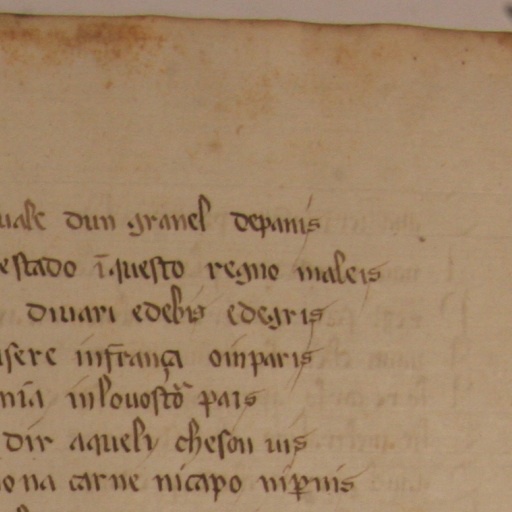 uale dun granel depanis
estado ī questo regno maleis
diuari edebis edegris
sere infrança oinparis
nia inlouostro pais
dir aquely cheson uis
na carne nicapo nip̱nis